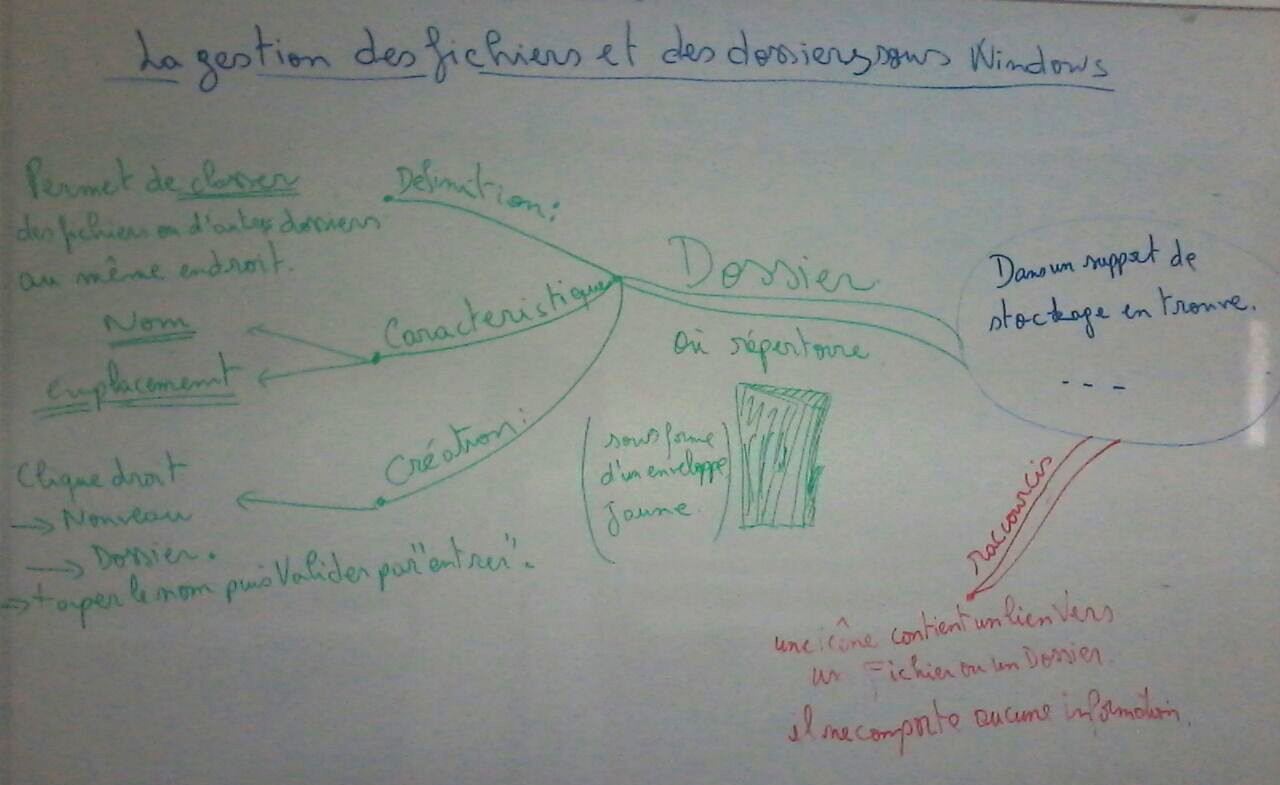 La gestion des fichiers et des dossiers sous Windows
Définition:
Permet de classer
des fichiers ou d'autres dossiers
au même endroit.
Caractéristique
Nom
Emplacement
Création:
Clique droit
→ Nouveau
→ Dossier.
→ taper le nom puis Valider par "entrer".
Dossier
Où répertoire
(sous forme
d'un enveloppe
jaune)
Dans un support de
stockage en trouve.
---
raccourcis
une icône contient un lien vers
un Fichier ou un Dossier.
il ne comporte aucune information.